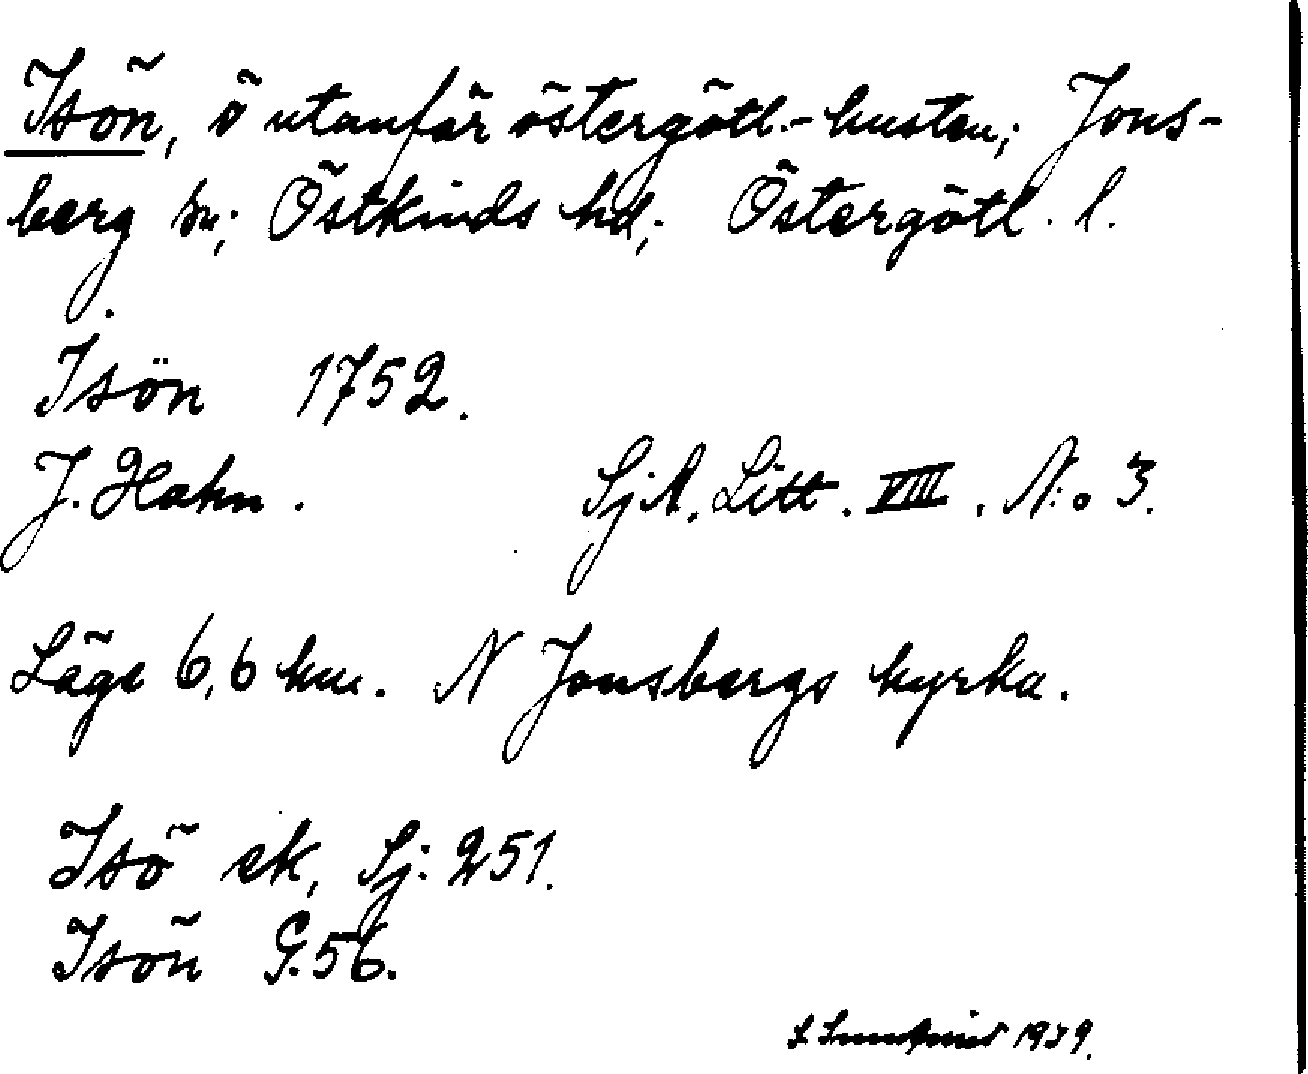 Isön, ö utanför östergötl.-kusten; Jons-
berg sn; Östkinds hd; Östergötl. l.
Isön 1752.
J. Hahn. SjA. Litt. VIII. N:o 3.
Läge 6,6 km. N Jonsbergs kyrka.
Isö ek, Sj: 251.
Isön G.56.
1939.